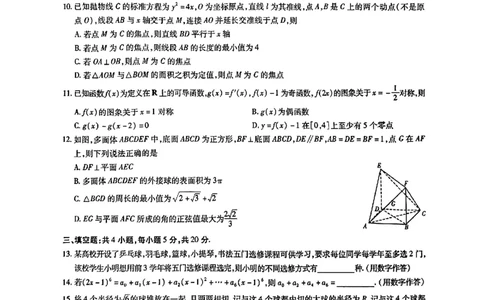 10. 已知抛物线 C 的标准方程为 y²=4x,O 为坐标原点,直线 l 为其准线,点 A,B 是 C 上的两个动点(不是原
点 O),线段 AB 与 x 轴交于点 M,连接 AO 并延长交准线于点 D,则
A. 若点 M 为 C 的焦点,则直线 BD 平行于 x 轴
B. 若点 M 为 C 的焦点,则线段 AB 的长度的最小值为 4
C. 若 OA⊥OB,则点 M 为 C 的焦点
D. 若△AOM 与△BOM 的面积之积为定值,则点 M 为 C 的焦点
11. 已知函数 f(x)为定义在 R 上的可导函数,g(x)=f′(x),f(x)-1 为奇函数,f(2x)的图象关于 x=-1/2 对称,则
A. f(x)的图象关于 x=1 对称 B. g(x)为偶函数
C. g(x)-g(x-2)=0 D. y=f(x)-1 在[0,4]上至少有 5 个零点
12. 如图,多面体 ABCDEF 中,底面 ABCD 为正方形,BF⊥底面 ABCD,DE∥BF,AB=DE=BF=1,点 G 在 AF
上,则下列说法正确的是
A. DF⊥平面 AEC
B. 多面体 ABCDEF 的外接球的表面积为 3π
C. △BDG 的周长的最小值为 √2+√3+√2
D. EG 与平面 AFC 所成角的正弦值最大为 2√2/3
E
F
D
G
C
A
B
三、填空题:共 4 小题,每小题 5 分,共 20 分.
13. 某高校开设了乒乓球,羽毛球,篮球,小提琴,书法五门选修课程可供学习,要求每位同学每学年至多选 2 门,
该校学生小明想用前 3 学年将五门选修课程选完,则小明的不同选修方式有 种.(用数字作答)
14. 若(2x-1)⁶=a₀+a₁(x-1)+a₂(x-1)²+⋯+a₆(x-1)⁶,则 a₀+a₂+a₄+a₆= .(用数字作答)